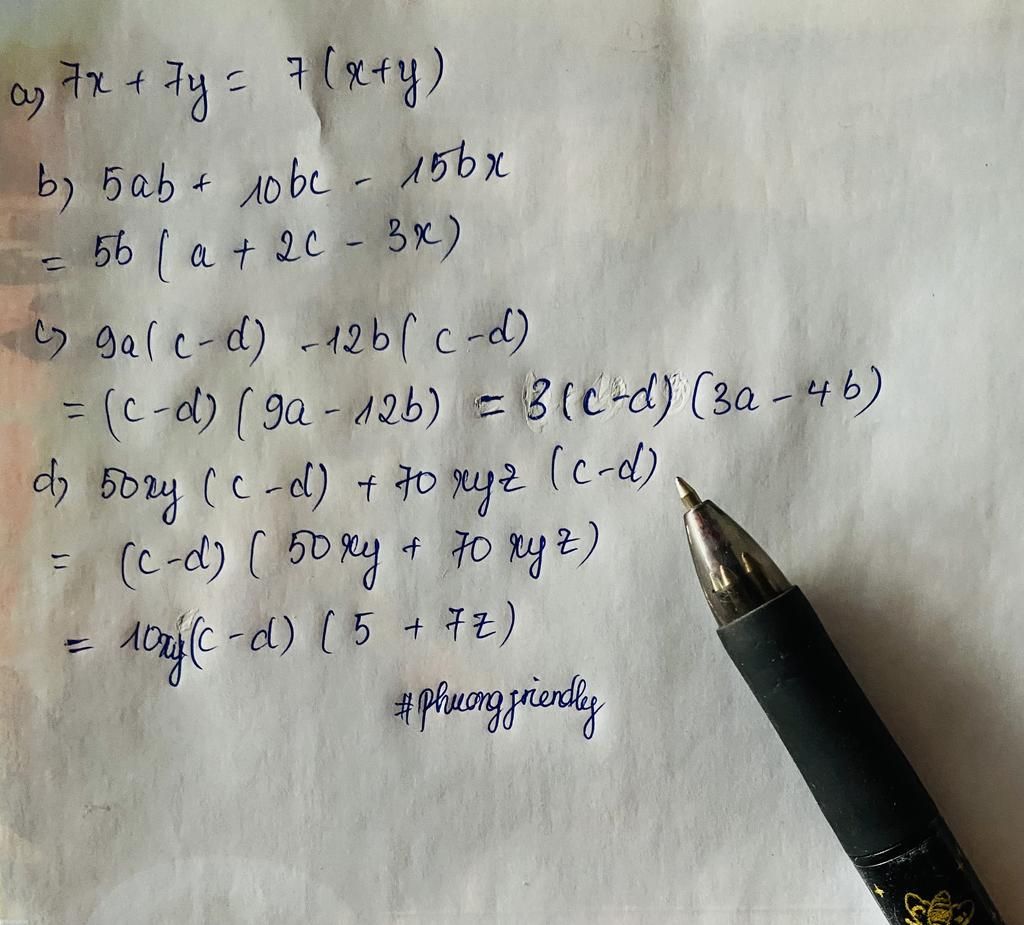 a) 7x + 7y = 7(x+y)
b) 5ab + 10bc - 15bx
= 5b (a + 2c - 3x)
c) 9a(c-d) -12b(c-d)
= (c-d) (9a - 12b) = 3(c-d)(3a - 4b)
d) 50xy (c-d) + 70xyz (c-d)
= (c-d) (50xy + 70xyz)
= 10xy(c-d) (5 + 7z)
#phuongfriendly